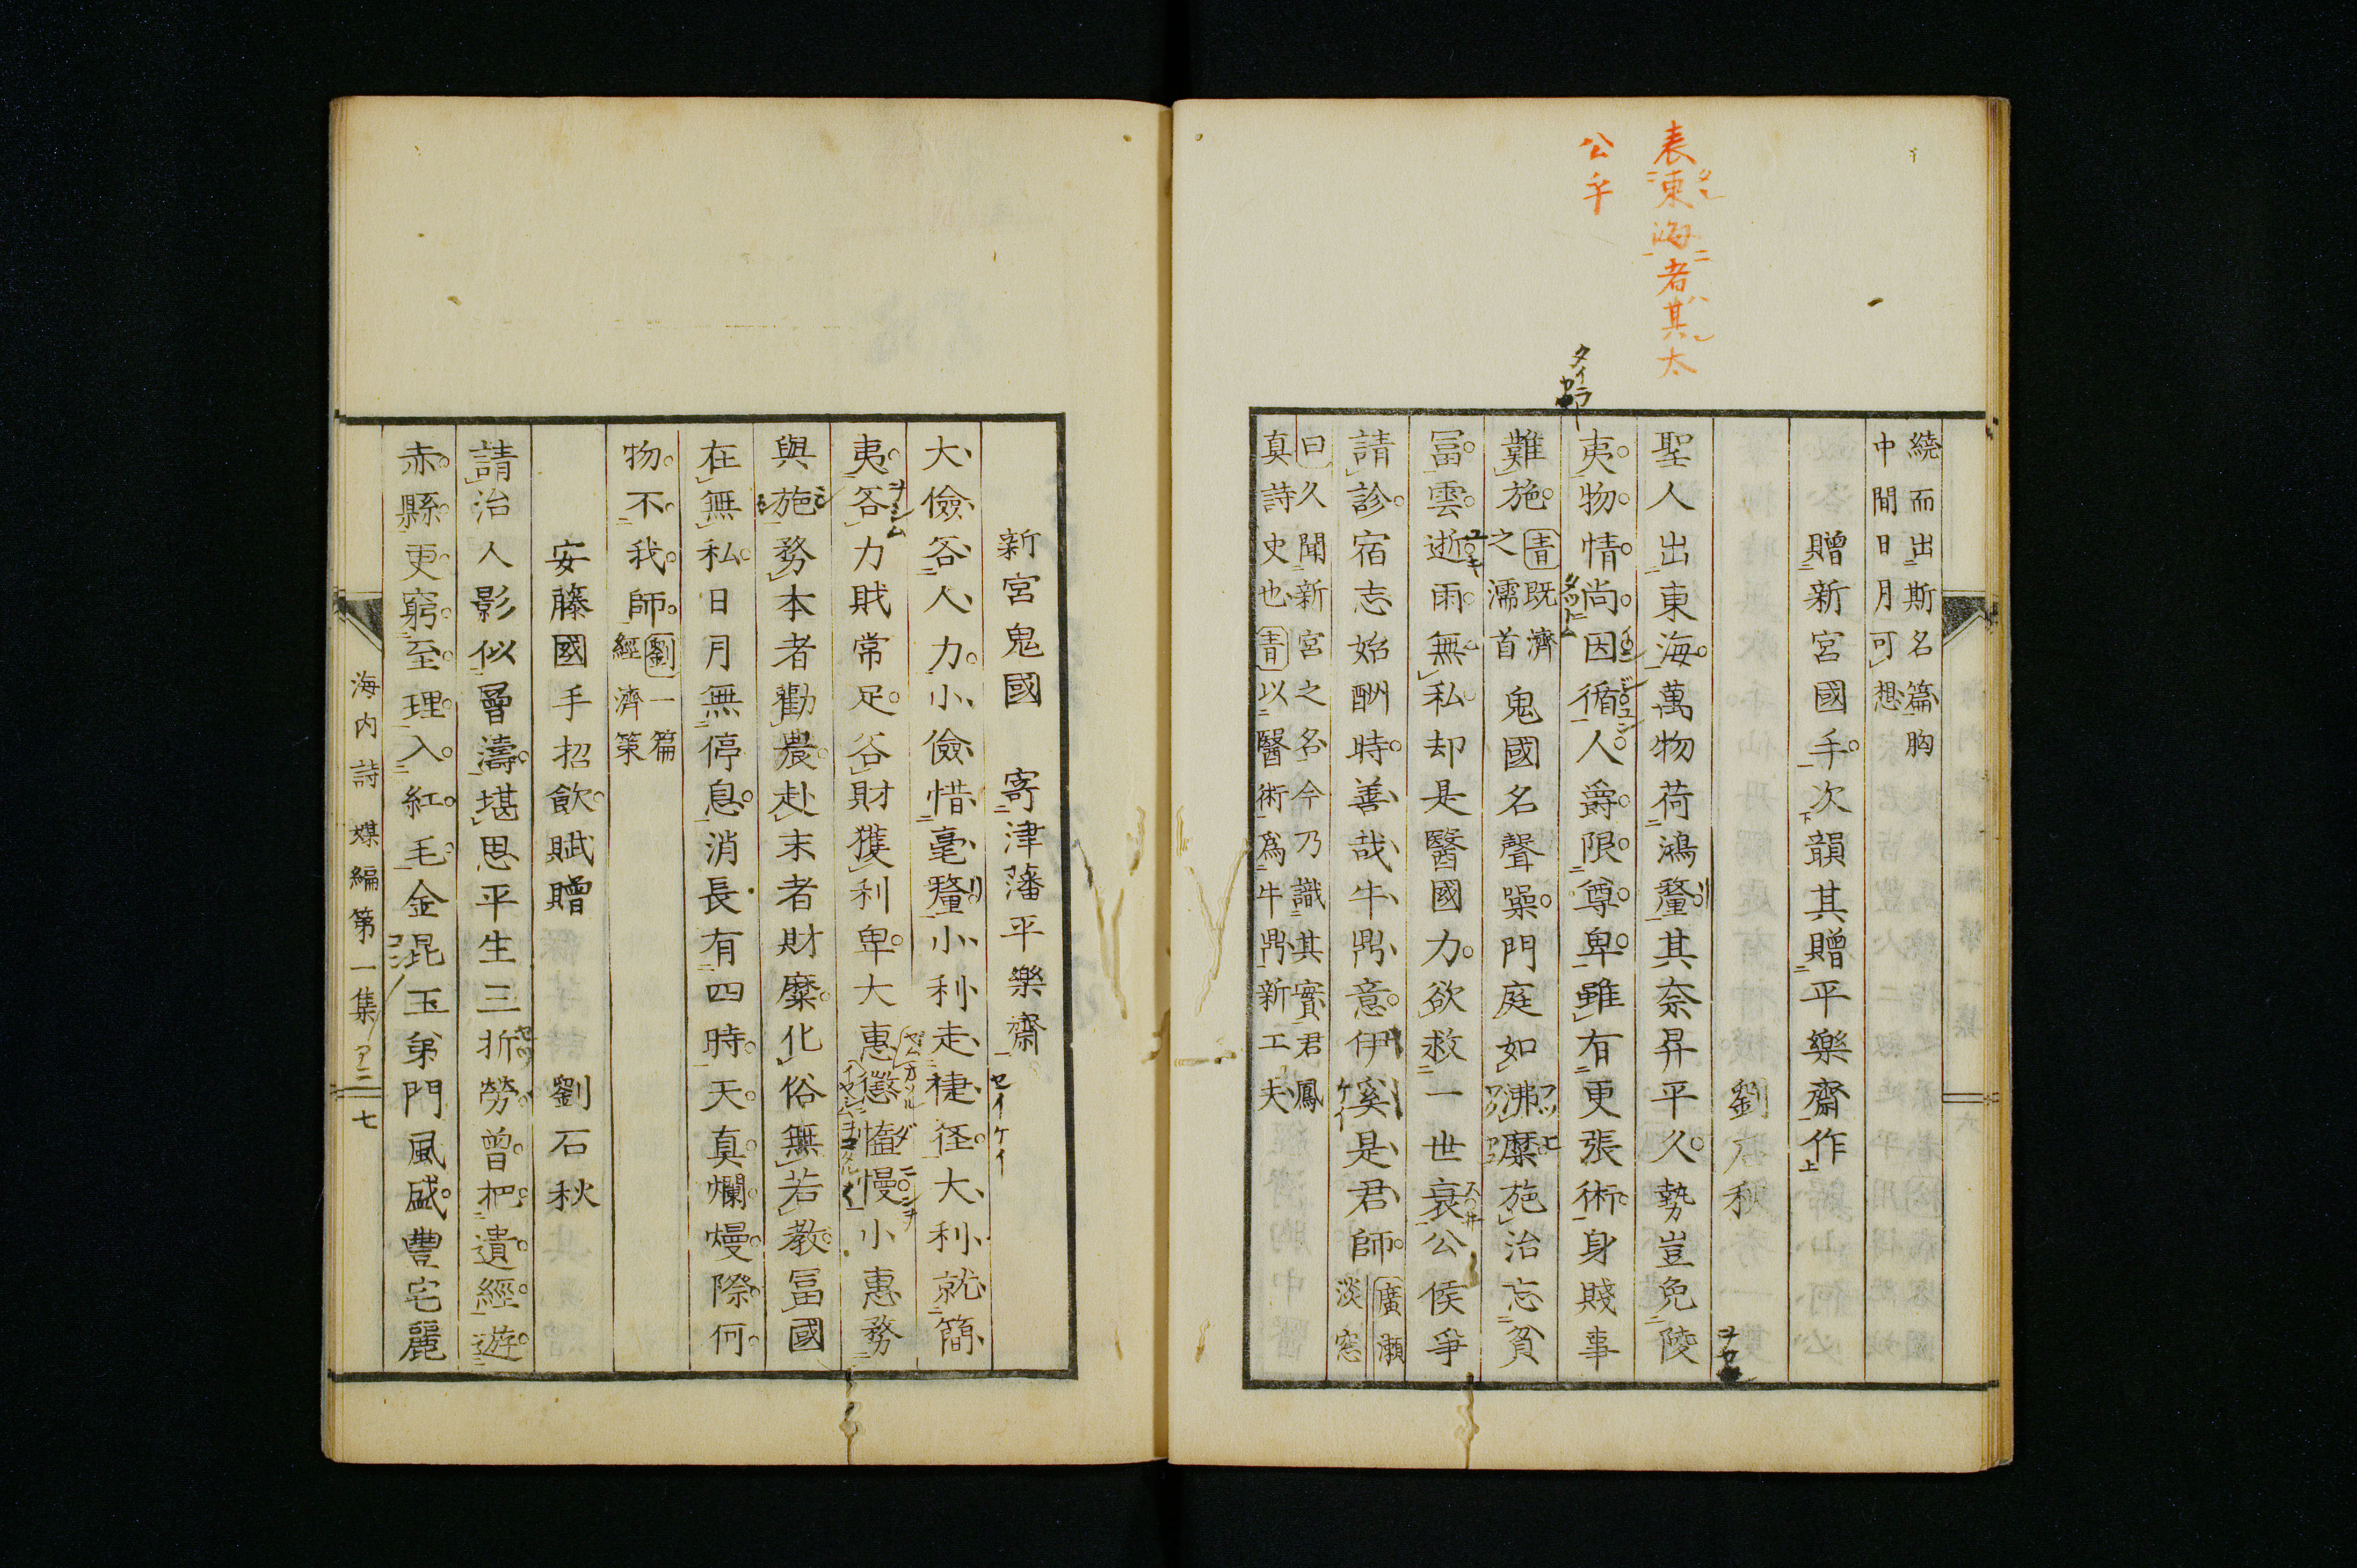 表東海者其太
公乎
繞而出斯名篇胸
中間日月可想
贈新宮國手次韻其贈平樂齋作
劉石秋
聖人出東海萬物荷鴻釐其奈昇平久勢豈免陵
夷物情尚因循人爵限尊卑雖有更張術身賤事
難施
青既濟
之濡首
鬼國名聲噪門庭如沸糜施治忘貧
冨雲逝雨無私却是醫國力欲救一世衰公侯爭
請診宿志始酬時善哉牛鼎意伊奚是君師
廣瀬
淡窓
曰久聞新宮之名今乃識其實君鳳
真詩史也青以醫術爲牛鼎新工夫
新宮鬼國 寄津藩平樂齋
大儉吝人力小儉惜毫釐小利走捷徑大利就簡
夷吝力財常足吝財獲利卑大惠懲慆慢小惠務
與施務本者勸農赴末者財糜化俗無若教冨國
在無私日月無停息消長有四時天真爛熳際何
物不我師
劉一篇
經濟策
安藤國手招飲賦贈 劉石秋
請治人影似層濤堪思平生三折勞曾把遺經遊
赤縣更窮至理入紅毛金昆玉弟門風盛豐宅麗
海内詩媒編第一集 七